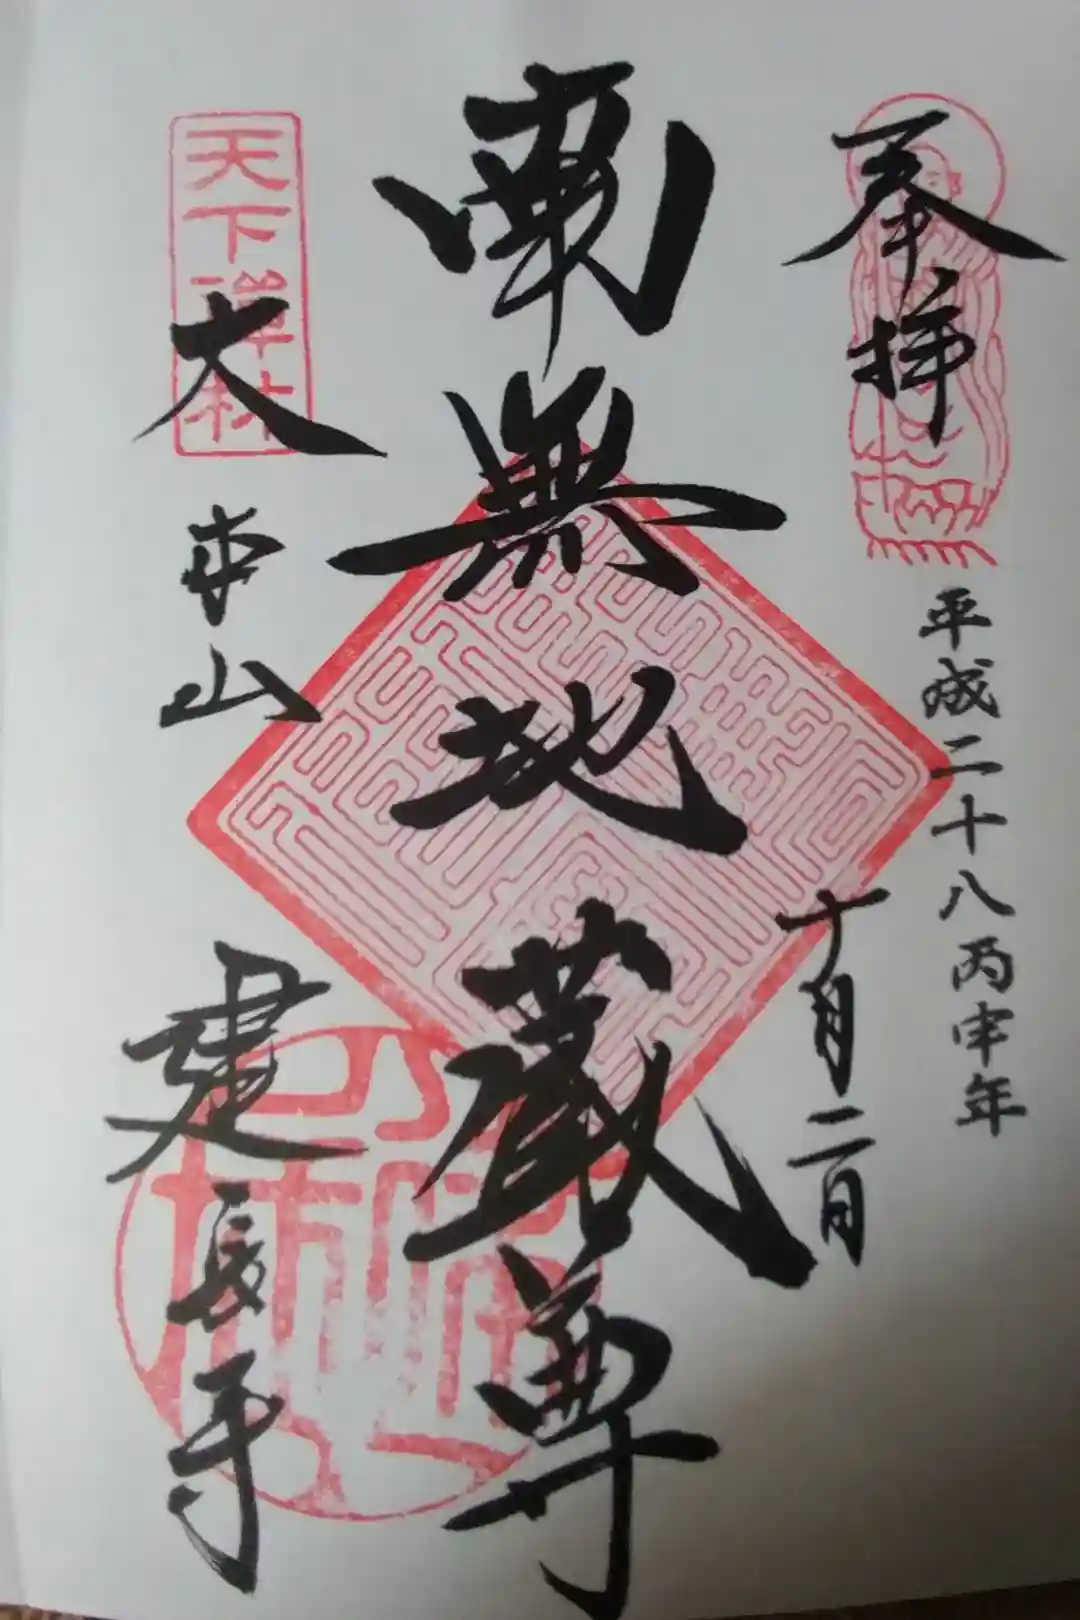 奉拝
平成二十八丙申年
十月二日
南無地蔵尊
天下禅林
大本山
建長寺